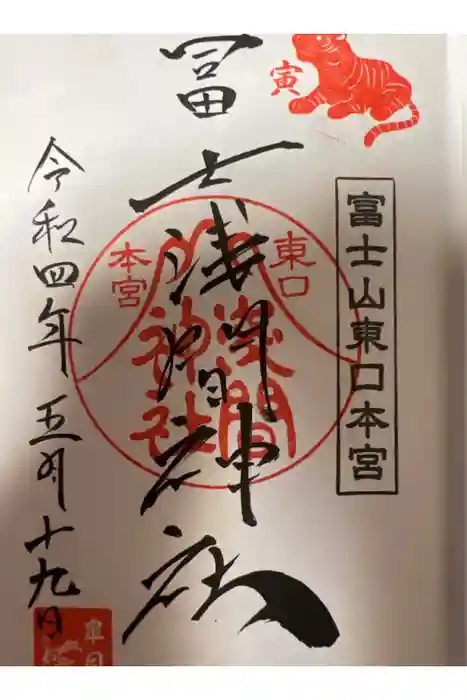 寅
富士山東口本宮
冨士浅間神社
東口
本宮
浅間
神社
令和四年五月十九日